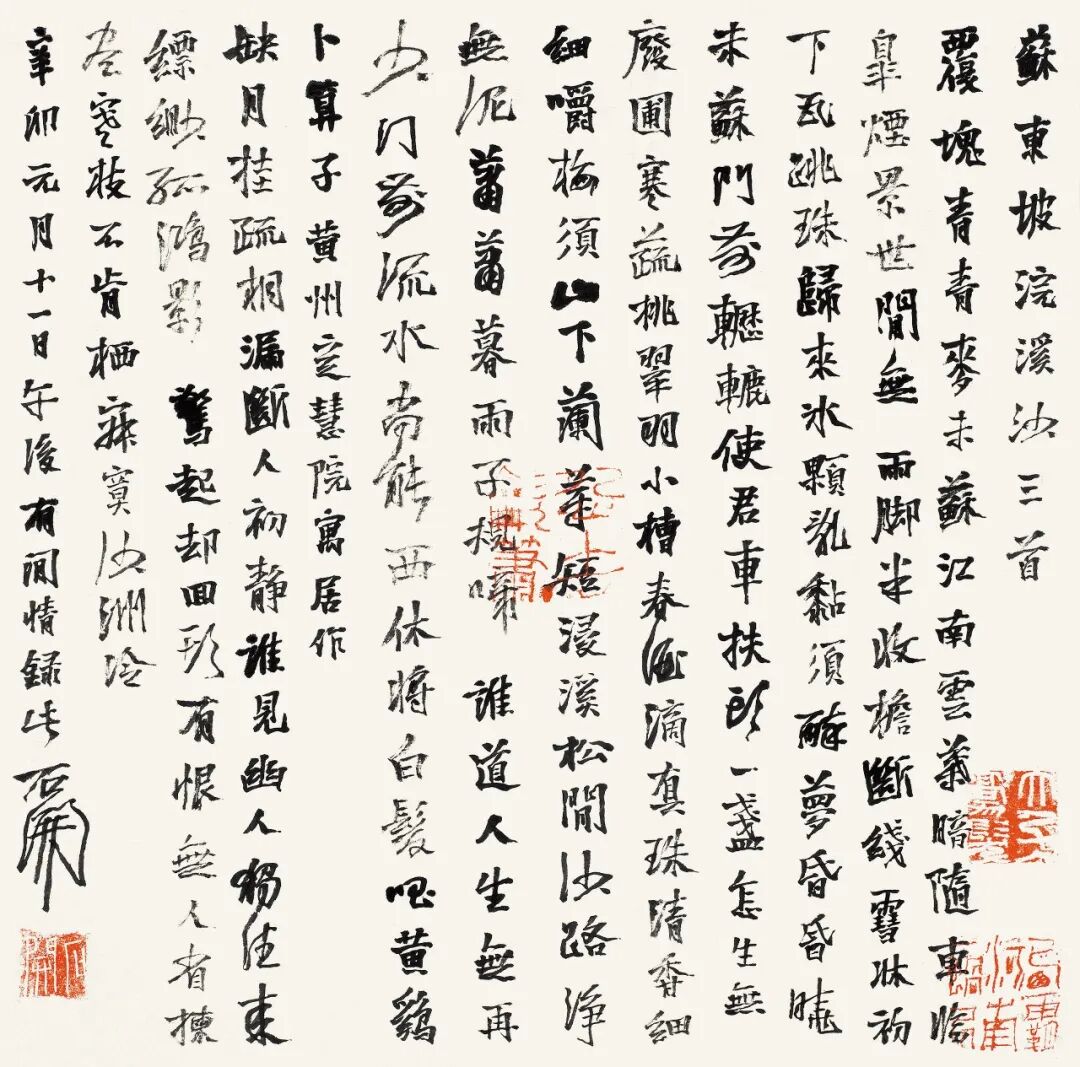 蘇東坡浣溪沙三首
覆塊青青麥未蘇江南雲葉暗隨車臨
皐煙景世間無 雨脚半收檐斷綫雪牀初
下瓦跳珠歸來冰顆亂黏須醉夢昏昏曉
未蘇門前轣轆使君車扶頭一盞怎生無
廢圃寒蔬挑翠羽小槽春酒滴真珠清香細
細嚼梅須山下蘭芽短浸溪松間沙路浄
無泥蕭蕭暮雨子規啼 誰道人生無再
少門前流水尚能西休將白髮唱黄鷄
卜算子黄州定慧院寓居作
缺月挂疏桐漏斷人初静誰見幽人獨往來
縹緲孤鴻影 驚起却回頭有恨無人省揀
盡寒枝不肯栖寂寞沙洲冷
辛卯元月十一日午後有閒情録此 石開